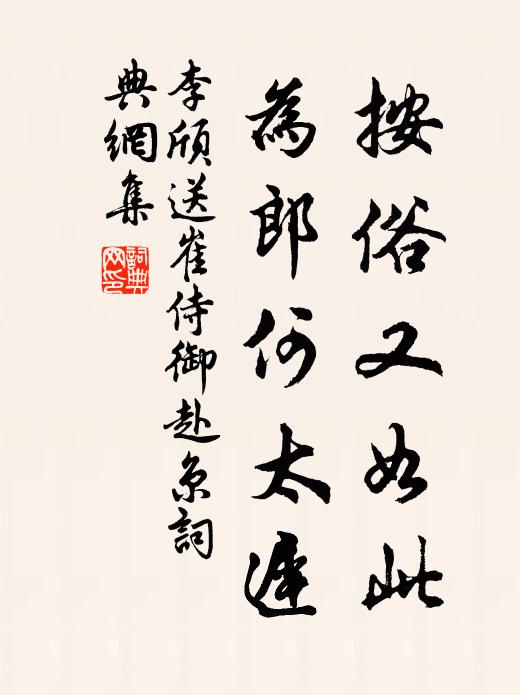 按俗又如此
為郎何太遲
李頎送崔侍御赴京詞
典網集
詞典
网印